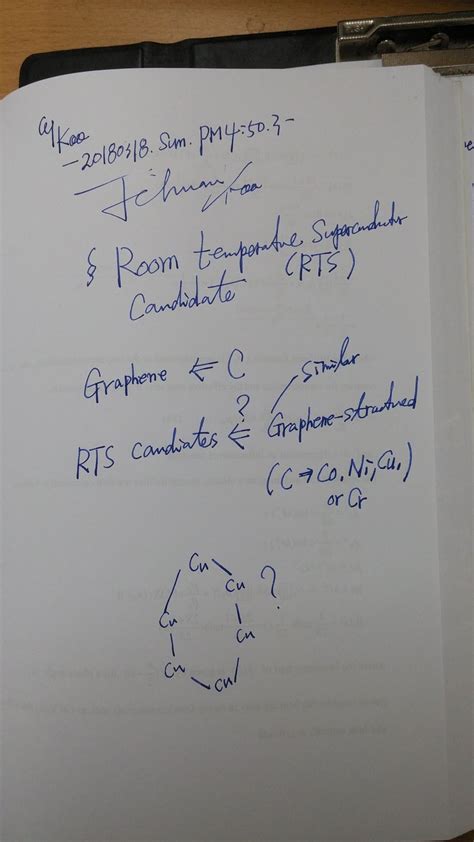 Koo
-20180318. Sun. PM4:50.3-
§ Room temperature Superconductor
Candidate (RTS)
Graphene ⇐ C
Similar
?
RTS candiates ⇐ Graphene-structured
(C→Co, Ni, Cu,)
or Cr
Cu
Cu ?
Cu
Cu
Cu
Cu